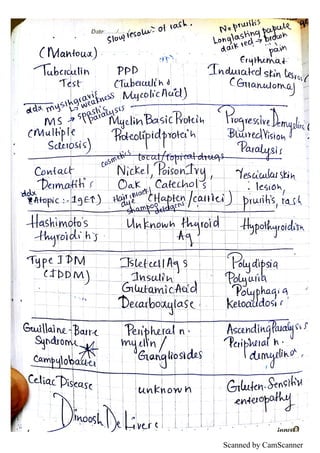 Date
slow resolu" of rash.
No pruritis
Longlasting papule
dark red → brown
pain
(Mantoux) Erythema
Tuberculin PPD Indurated skin lesion
Test (Tuberculin & (Granuloma)
Mycolic Acid)
ddx mysthgravis
↳ weakness
MS → spastic paralysis Myelin Basic Protein Progressive Demyelin"
(Multiple Proteolipid protein Blurred Vision
Sclerosis) Paralysis
cosmetics local/topical drugs
Contact Nickel, Poison Ivy, Vesicular skin
Dermatitis Oak Catechols lesion,
ddx Atopic :- IgE↑) Hair dye (Hapten/carrier) pruritis, rash
shampoo detergents
Hashimoto's Unknown thyroid Hypothyroidism
thyroiditis Ag
Type I DM Islet cell Ags Polydipsia
(IDDM) Insulin Polyuria
Glutamic Acid Polyphagia
Decarboxylase Ketoacidosis
Guillaine-Barre Peripheral n. Ascending Paralysis
Syndrome myelin/ Peripheral n.
Campylobacter Gangliosides demyelino"
Celiac Disease unknown Gluten-Sensitive
enteropathy
Dinoosh De Livera
Scanned by CamScanner